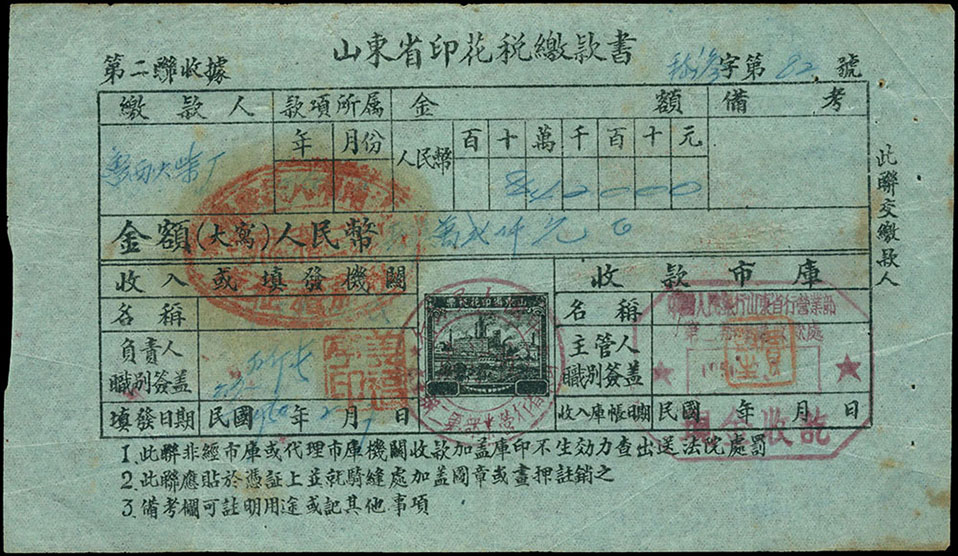 山東省印花税繳款書
第二聯收據
字第 82 號
繳款人 款項所属 金額 備考
年 月份 人民幣 百 十 萬 千 百 十 元
金額(大寫)人民幣 萬 仟元
收入或填發機關 收款市庫
名稱 名稱
負責人 主管人
職別簽盖 職別簽盖
填發日期 民國 年 月 日 收入庫帳日期 民國 年 月 日
此聯交繳款人
中國人民銀行山東省行營業部
現金收訖
1. 此聯非經市庫或代理市庫機關收款加盖庫印不生効力查出送法院處罰
2. 此聯應貼於憑証上並就騎縫處加盖圖章或畫押註銷之
3. 備考欄可註明用途或記其他事項